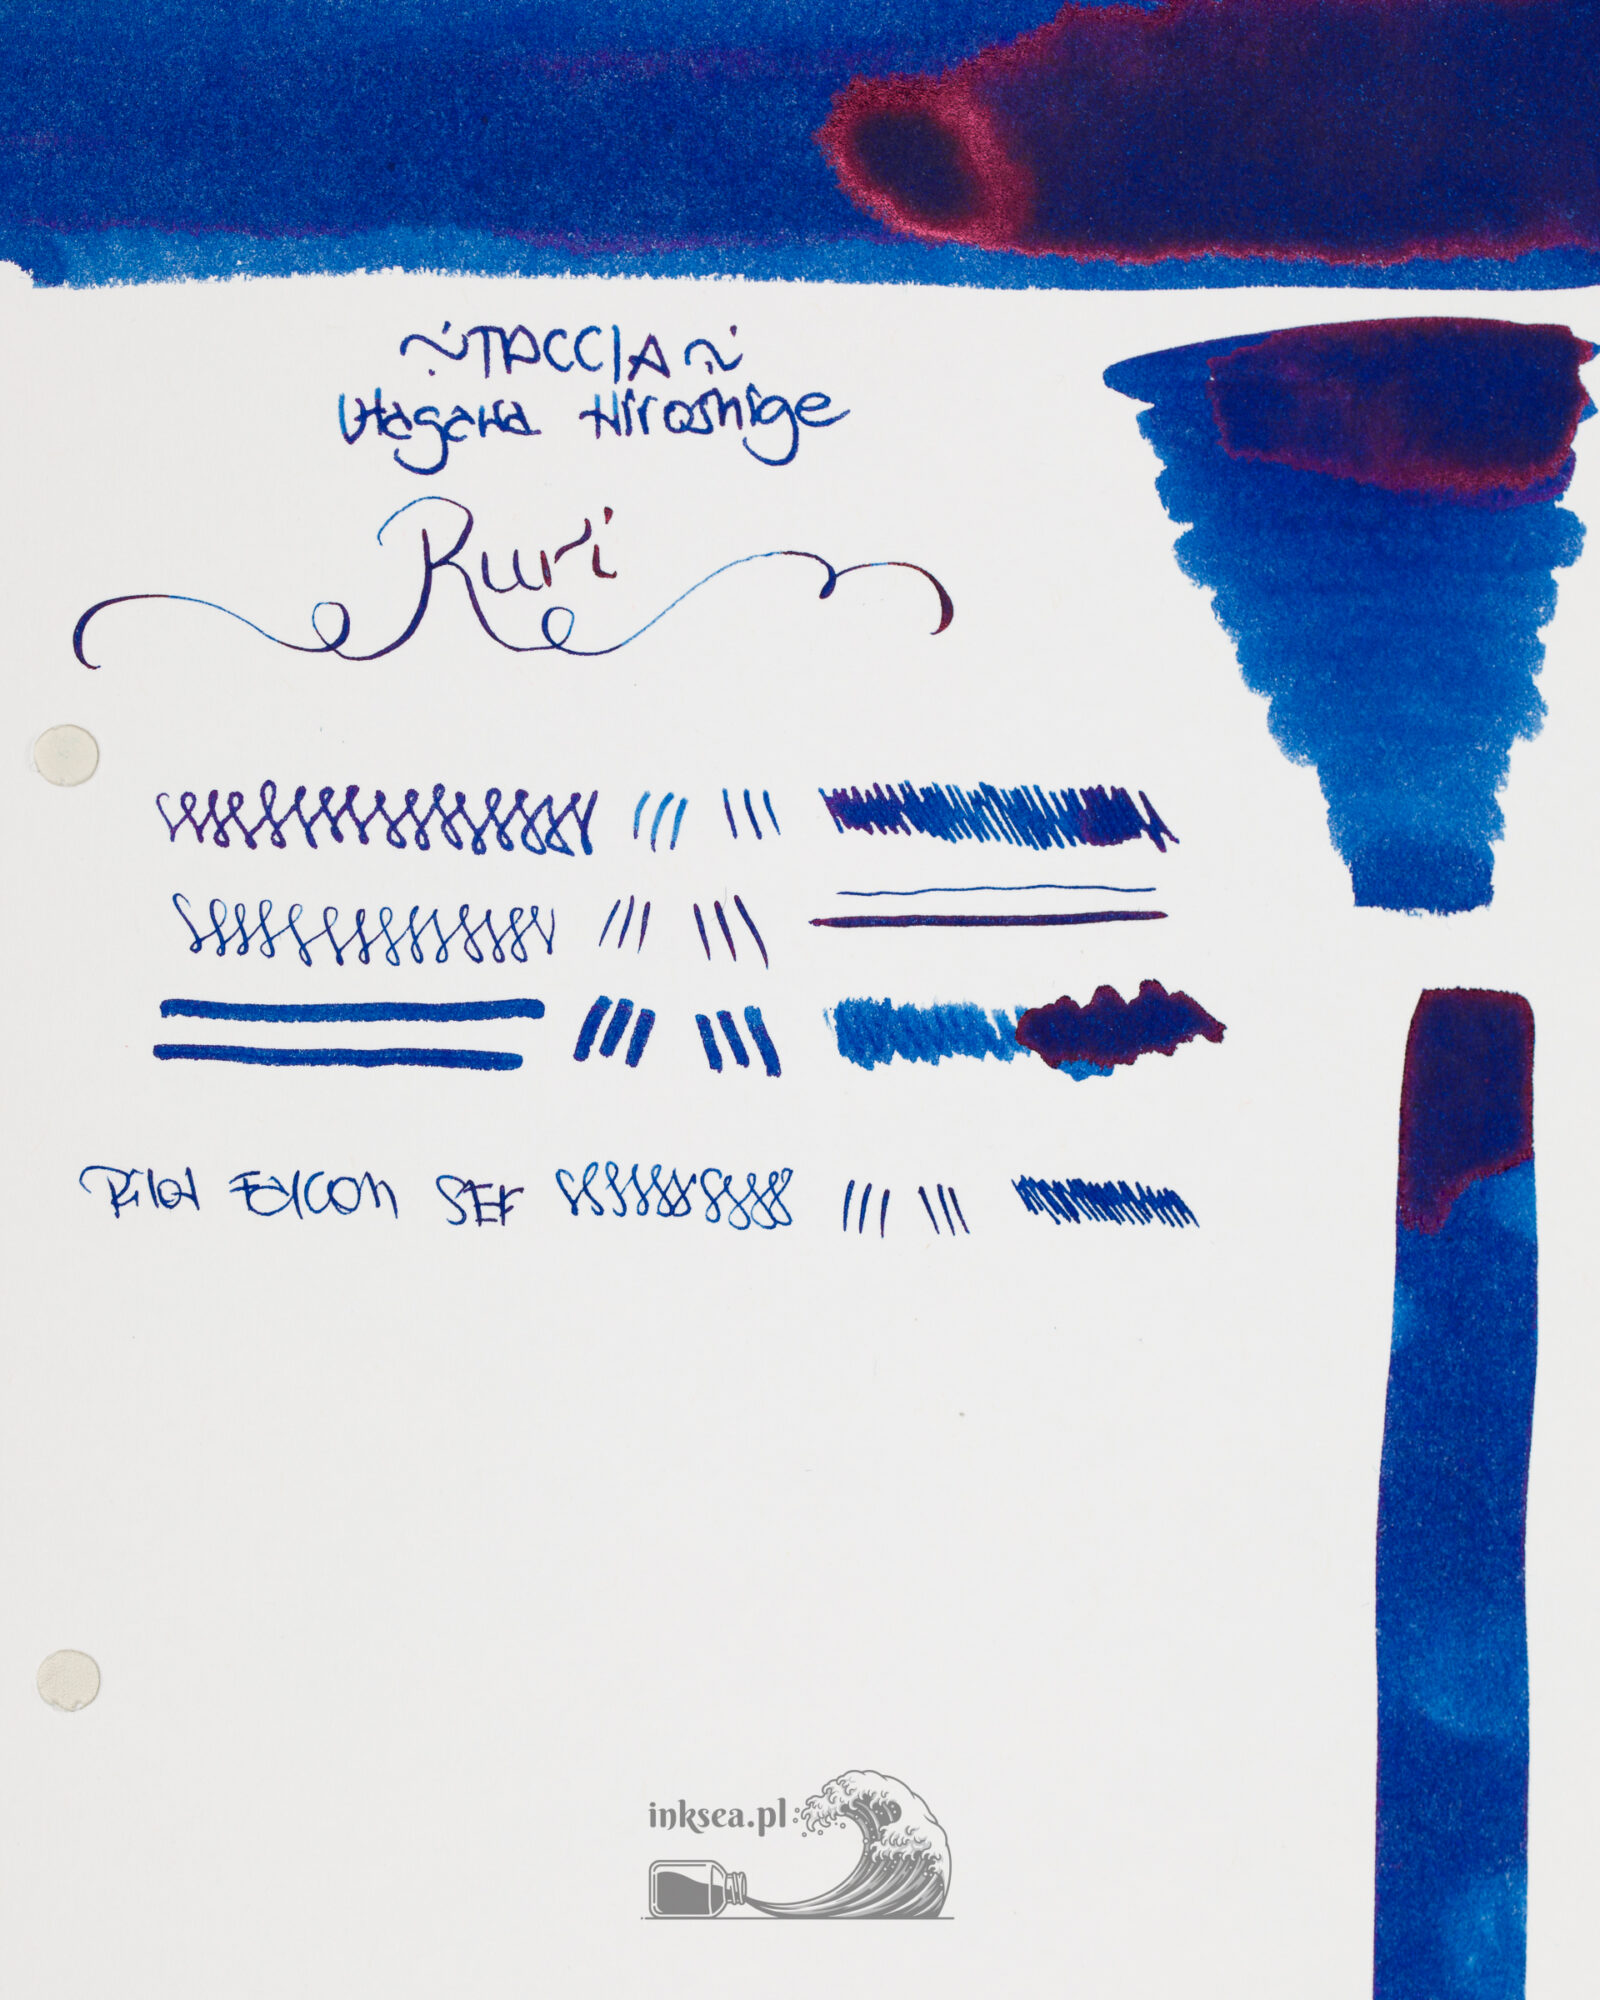 ~TACCIA~
Utagawa Hiroshige
Ruri
Pilot Falcon SEF
inksea.pl